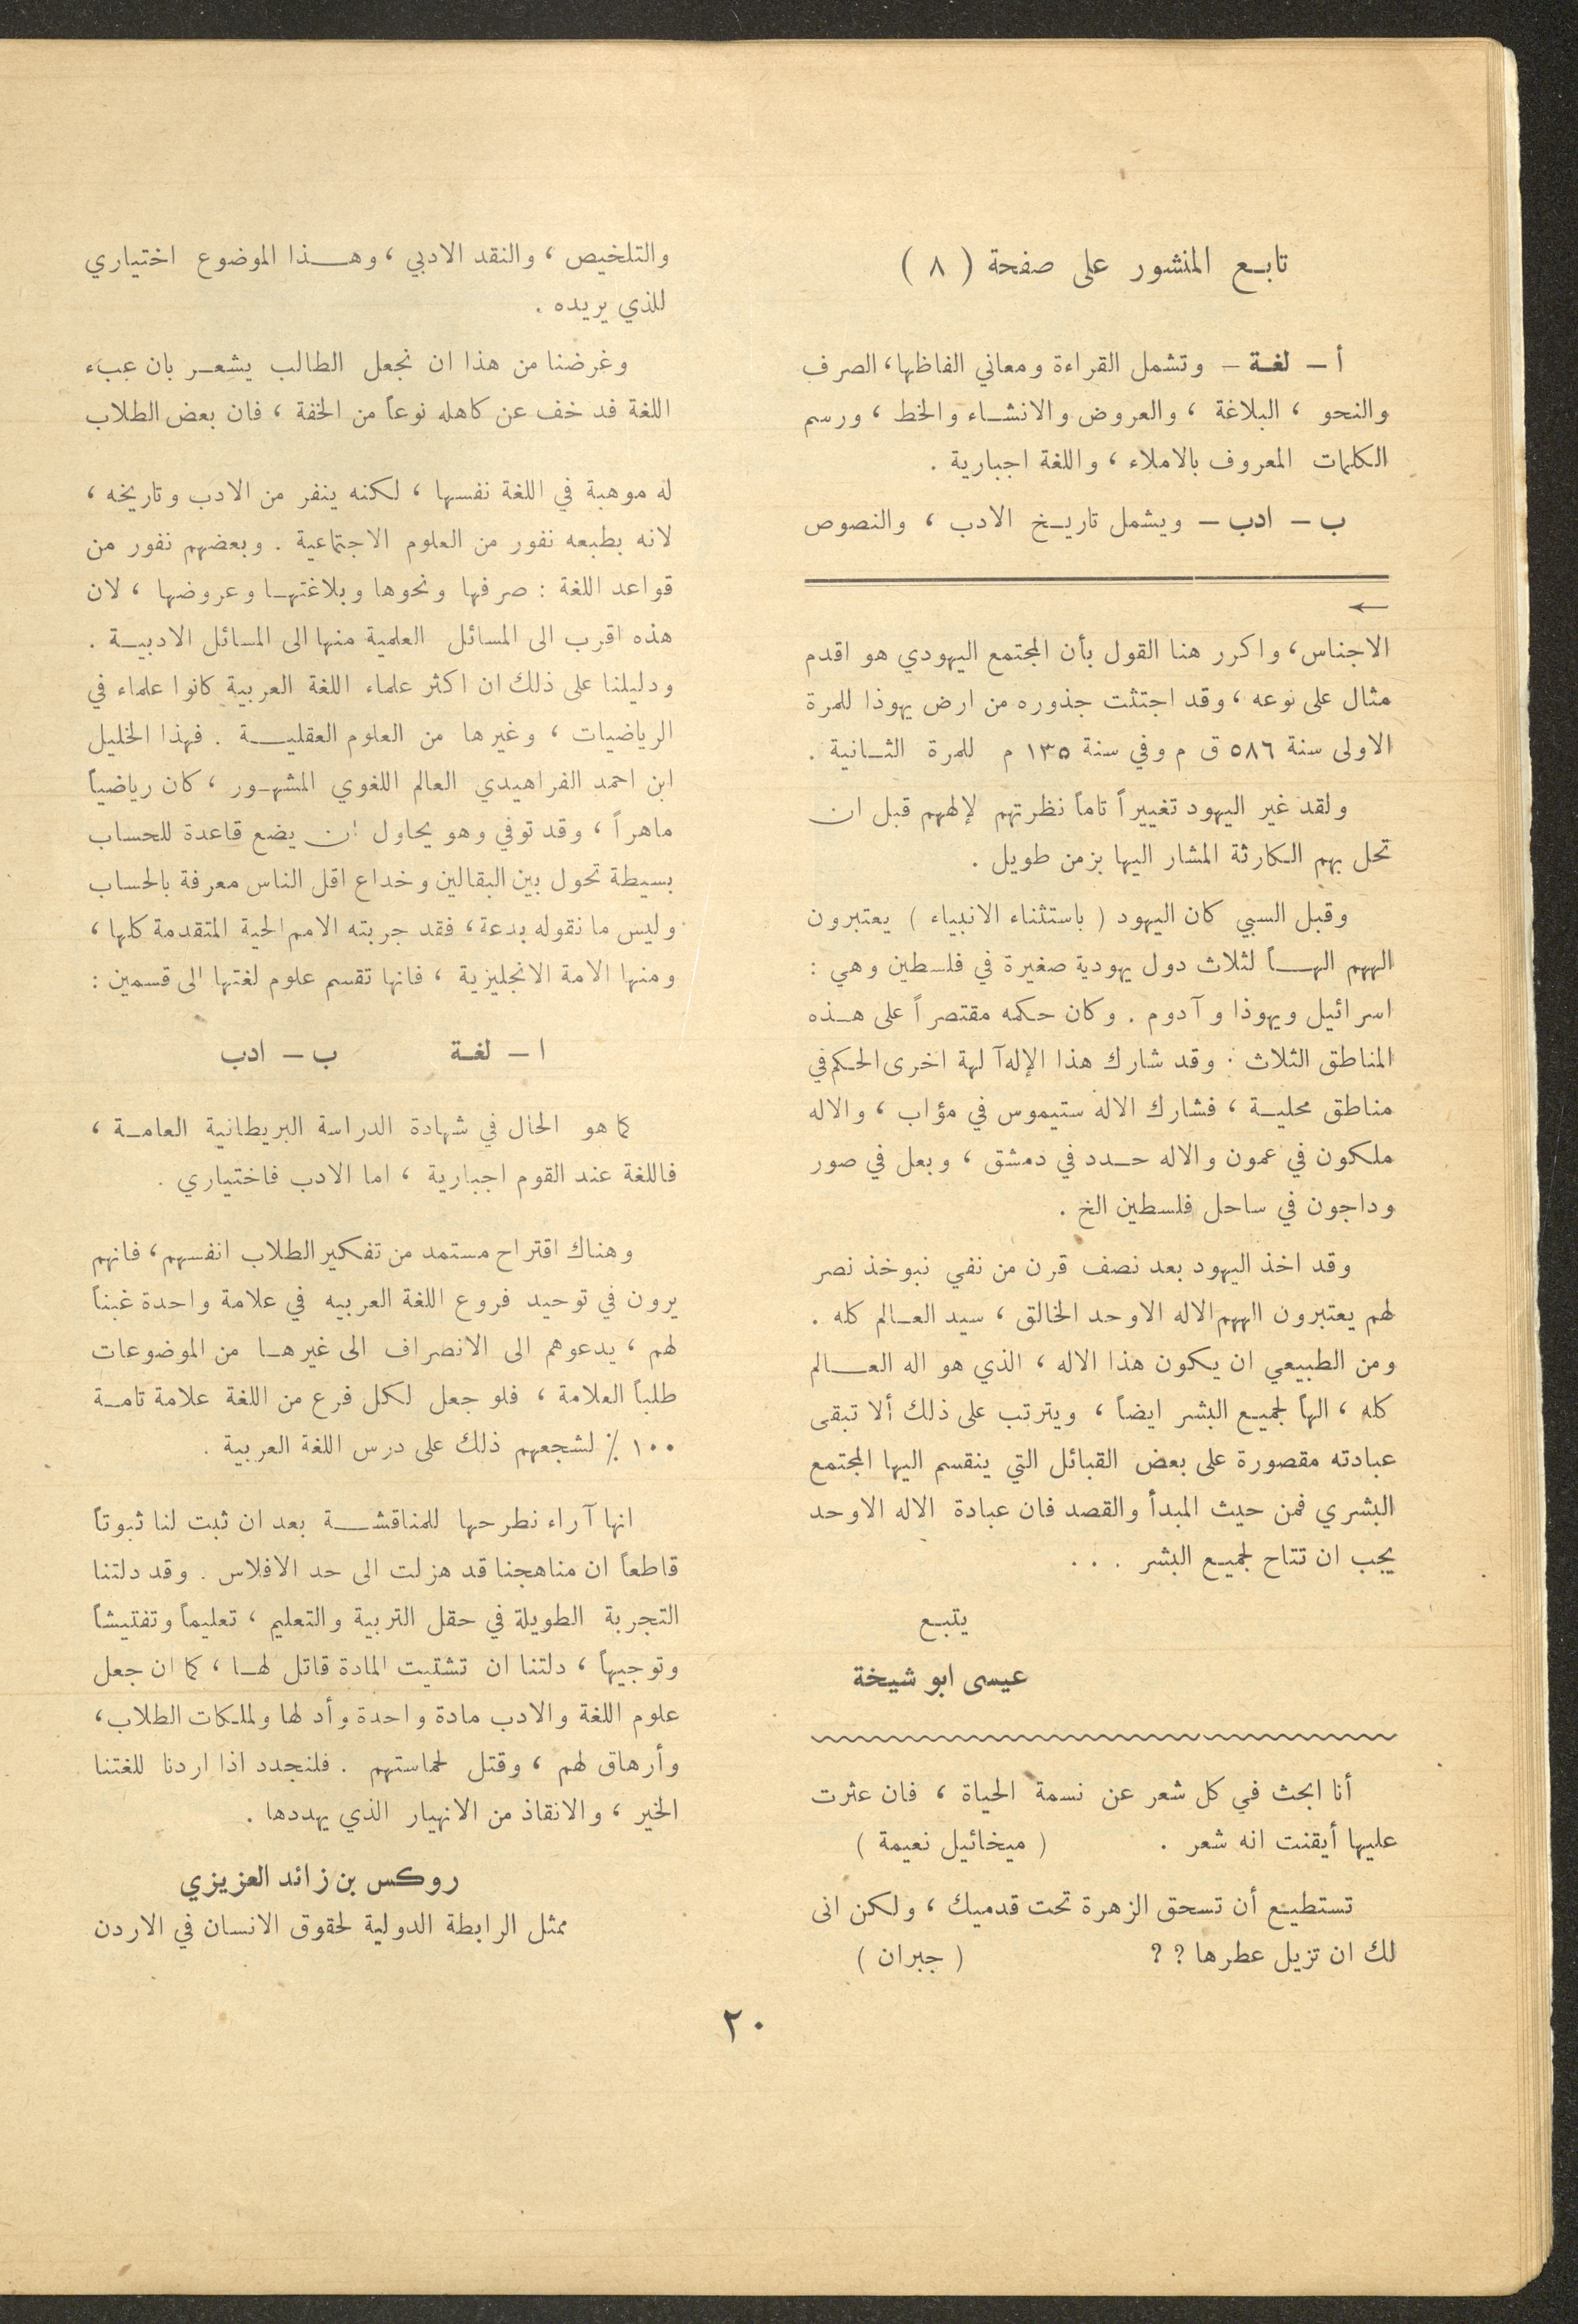 تابع المنشور على صفحة ( ٨ )
أ – لغة – وتشمل القراءة ومعاني الفاظها، الصرف
والنحو ، البلاغة ، والعروض والانشاء والخط ، ورسم
الكلمات المعروف بالاملاء ، واللغة اجبارية .
ب – ادب – ويشمل تاريخ الادب ، والنصوص
←
الاجناس، واكرر هنا القول بأن المجتمع اليهودي هو اقدم
مثال على نوعه ، وقد اجتثت جذوره من ارض يهوذا للمرة
الاولى سنة ٥٨٦ ق م وفي سنة ١٣٥ م للمرة الثانية .
ولقد غير اليهود تغييراً تاماً نظرتهم لإلههم قبل ان
تحل بهم الكارثة المشار اليها بزمن طويل .
وقبل السبي كان اليهود ( باستثناء الانبياء ) يعتبرون
الههم الهاً لثلاث دول يهودية صغيرة في فلسطين وهي :
اسرائيل ويهوذا وآدوم . وكان حكمه مقتصراً على هذه
المناطق الثلاث . وقد شارك هذا الإله آلهة اخرى الحكم في
مناطق محلية ، فشارك الاله ستيموس في مؤاب ، والاله
ملكون في عمون والاله حدد في دمشق ، وبعل في صور
وداجون في ساحل فلسطين الخ .
وقد اخذ اليهود بعد نصف قرن من نفي نبوخذ نصر
لهم يعتبرون الههم الاله الاوحد الخالق ، سيد العالم كله .
ومن الطبيعي ان يكون هذا الاله ، الذي هو اله العالم
كله ، الهاً لجميع البشر ايضاً ، ويترتب على ذلك ألا تبقى
عبادته مقصورة على بعض القبائل التي ينقسم اليها المجتمع
البشري فمن حيث المبدأ والقصد فان عبادة الاله الاوحد
يجب ان تتاح لجميع البشر . . .
يتبع
عيسى ابو شيخة
أنا ابحث في كل شعر عن نسمة الحياة ، فان عثرت
عليها أيقنت انه شعر . ( ميخائيل نعيمة )
تستطيع أن تسحق الزهرة تحت قدميك ، ولكن انى
لك ان تزيل عطرها ؟ ؟ ( جبران )
والتلخيص ، والنقد الادبي ، وهذا الموضوع اختياري
للذي يريده .
وغرضنا من هذا ان نجعل الطالب يشعر بان عبء
اللغة قد خف عن كاهله نوعاً من الخفة ، فان بعض الطلاب
له موهبة في اللغة نفسها ، لكنه ينفر من الادب وتاريخه ،
لانه بطبعه نفور من العلوم الاجتماعية . وبعضهم نفور من
قواعد اللغة : صرفها ونحوها وبلاغتها وعروضها ، لان
هذه اقرب الى المسائل العلمية منها الى المسائل الادبية .
ودليلنا على ذلك ان اكثر علماء اللغة العربية كانوا علماء في
الرياضيات ، وغيرها من العلوم العقلية . فهذا الخليل
ابن احمد الفراهيدي العالم اللغوي المشهور ، كان رياضياً
ماهراً ، وقد توفي وهو يحاول ان يضع قاعدة للحساب
بسيطة تحول بين البقالين وخداع اقل الناس معرفة بالحساب
وليس ما نقوله بدعة ، فقد جربته الامم الحية المتقدمة كلها ،
ومنها الامة الانجليزية ، فانها تقسم علوم لغتها الى قسمين :
ا – لغة ب – ادب
كما هو الحال في شهادة الدراسة البريطانية العامة ،
فاللغة عند القوم اجبارية ، اما الادب فاختياري .
وهناك اقتراح مستمد من تفكير الطلاب انفسهم ، فانهم
يرون في توحيد فروع اللغة العربيه في علامة واحدة غبناً
لهم ، يدعوهم الى الانصراف الى غيرها من الموضوعات
طلباً العلامة ، فلو جعل لكل فرع من اللغة علامة تامة
١٠٠ ٪ لشجعهم ذلك على درس اللغة العربية .
انها آراء نطرحها للمناقشة بعد ان ثبت لنا ثبوتاً
قاطعاً ان مناهجنا قد هزلت الى حد الافلاس . وقد دلتنا
التجربة الطويلة في حقل التربية والتعليم ، تعليماً وتفتيشاً
وتوجيهاً ، دلتنا ان تشتيت المادة قاتل لها ، كما ان جعل
علوم اللغة والادب مادة واحدة وأد لها ولملكات الطلاب ،
وأرهاق لهم ، وقتل لحماستهم . فلنجدد اذا اردنا للغتنا
الخير ، والانقاذ من الانهيار الذي يهددها .
روكس بن زائد العزيزي
ممثل الرابطة الدولية لحقوق الانسان في الاردن
٢٠